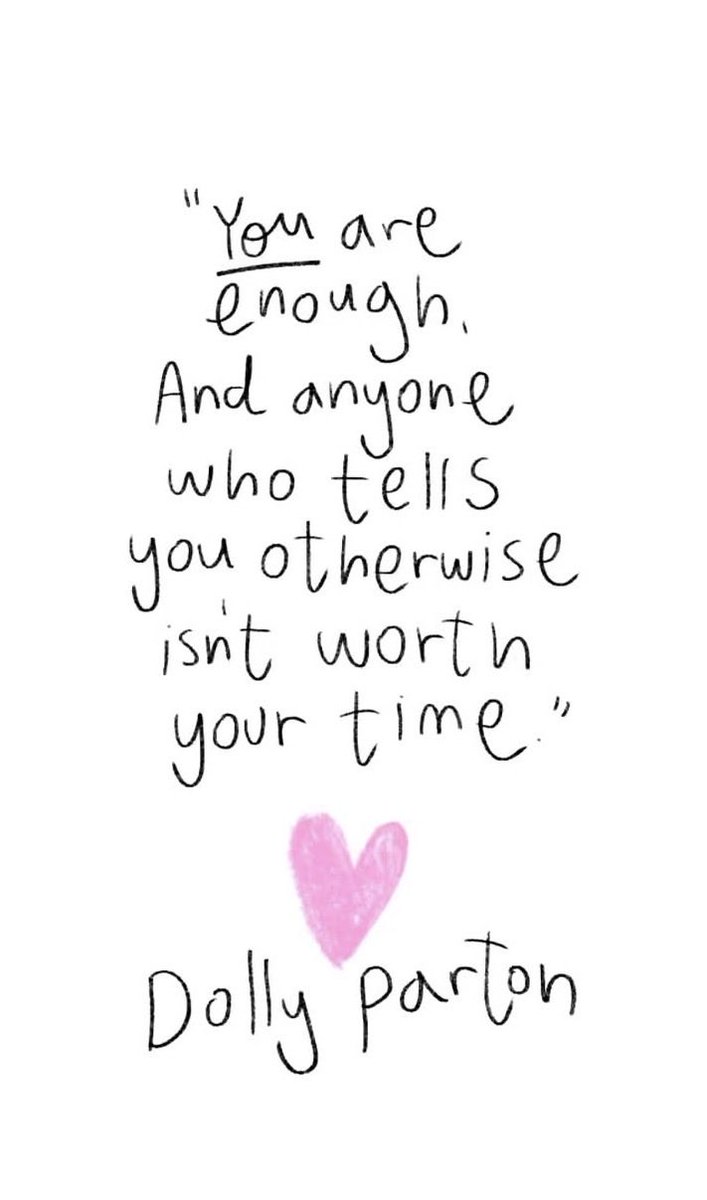 "You are
enough.
And anyone
who tells
you otherwise
isn't worth
your time."
Dolly Parton